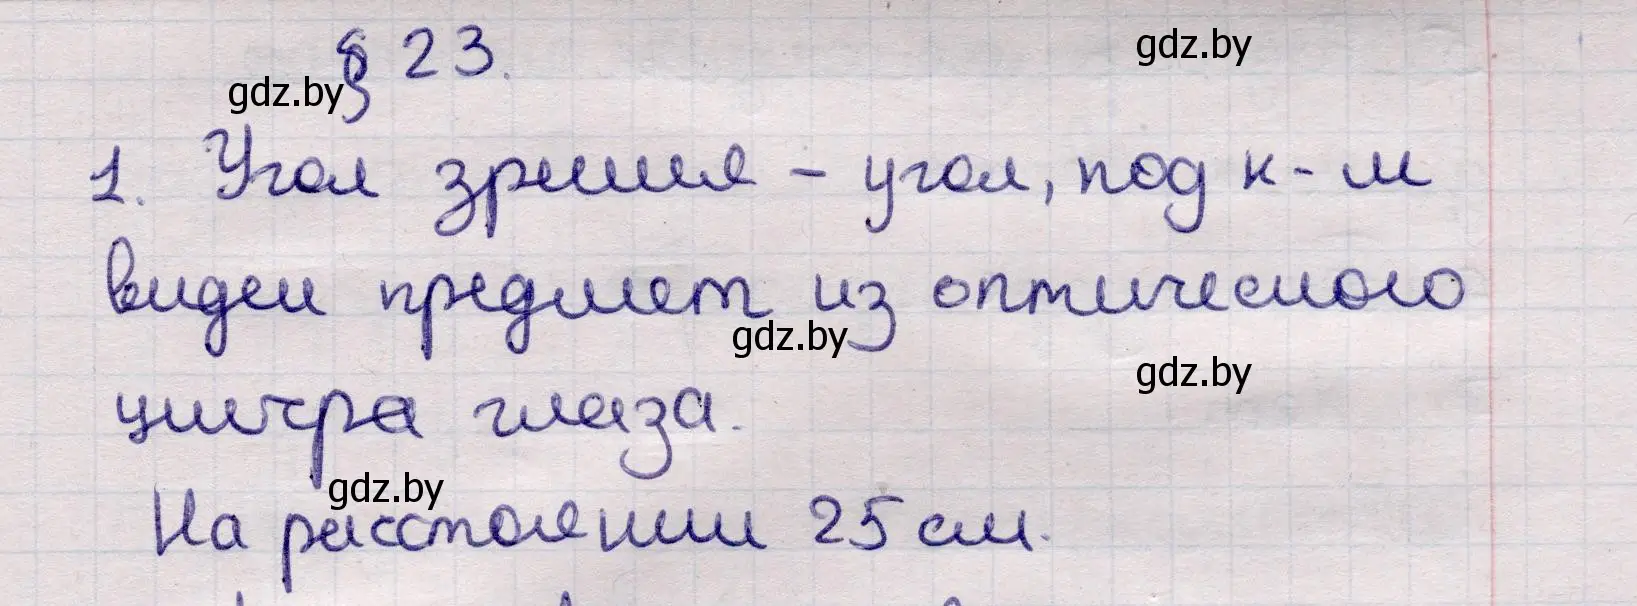 § 23.
gdz.by
gdz.by
1. Угол зрения - угол, под к-м
виден предмет из оптического
gdz.by
gdz.by
центра глаза.
gdz.by
На расстоянии 25 см.